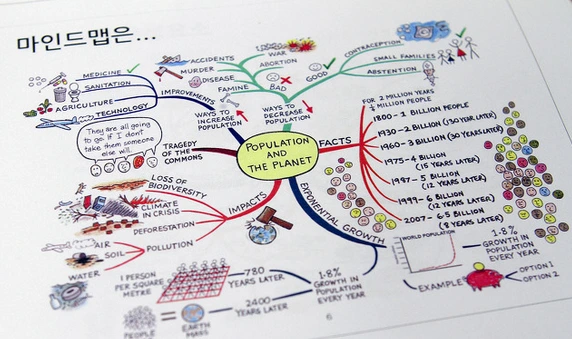 마인드맵은...
MEDICINE
SANITATION
AGRICULTURE
TECHNOLOGY
IMPROVEMENTS
WAYS TO
INCREASE
POPULATION
ACCIDENTS
MURDER
DISEASE
FAMINE
WAR
ABORTION
BAD
GOOD
WAYS TO
DECREASE
POPULATION
CONTRACEPTION
SMALL FAMILIES
ABSTENTION
They are all going
to go if I don't
take them someone
else will...
TRAGEDY
OF THE
COMMONS
POPULATION
AND
THE PLANET
FACTS
FOR 2 MILLION YEARS
MILLION PEOPLE
1800 - 1 BILLION PEOPLE
1930 - 2 BILLION (130 YEARS LATER)
1960 - 3 BILLION (30 YEARS LATER)
1975 - 4 BILLION
(15 YEARS LATER)
1987 - 5 BILLION
(12 YEARS LATER)
1999 - 6 BILLION
(12 YEARS LATER)
2007 - 6·5 BILLION
(8 YEARS LATER)
LOSS OF
BIODIVERSITY
CLIMATE
IN CRISIS
DEFORESTATION
POLLUTION
AIR
SOIL
WATER
IMPACTS
EXPONENTIAL GROWTH
1 PERSON
PER SQUARE
METRE
780
YEARS LATER
2400
YEARS LATER
1·8%
GROWTH IN
POPULATION
EVERY YEAR
PEOPLE
=
EARTH
MASS
WORLD POPULATION
1·8%
GROWTH IN
POPULATION
EVERY YEAR
EXAMPLE
OPTION 1
OPTION 2
6